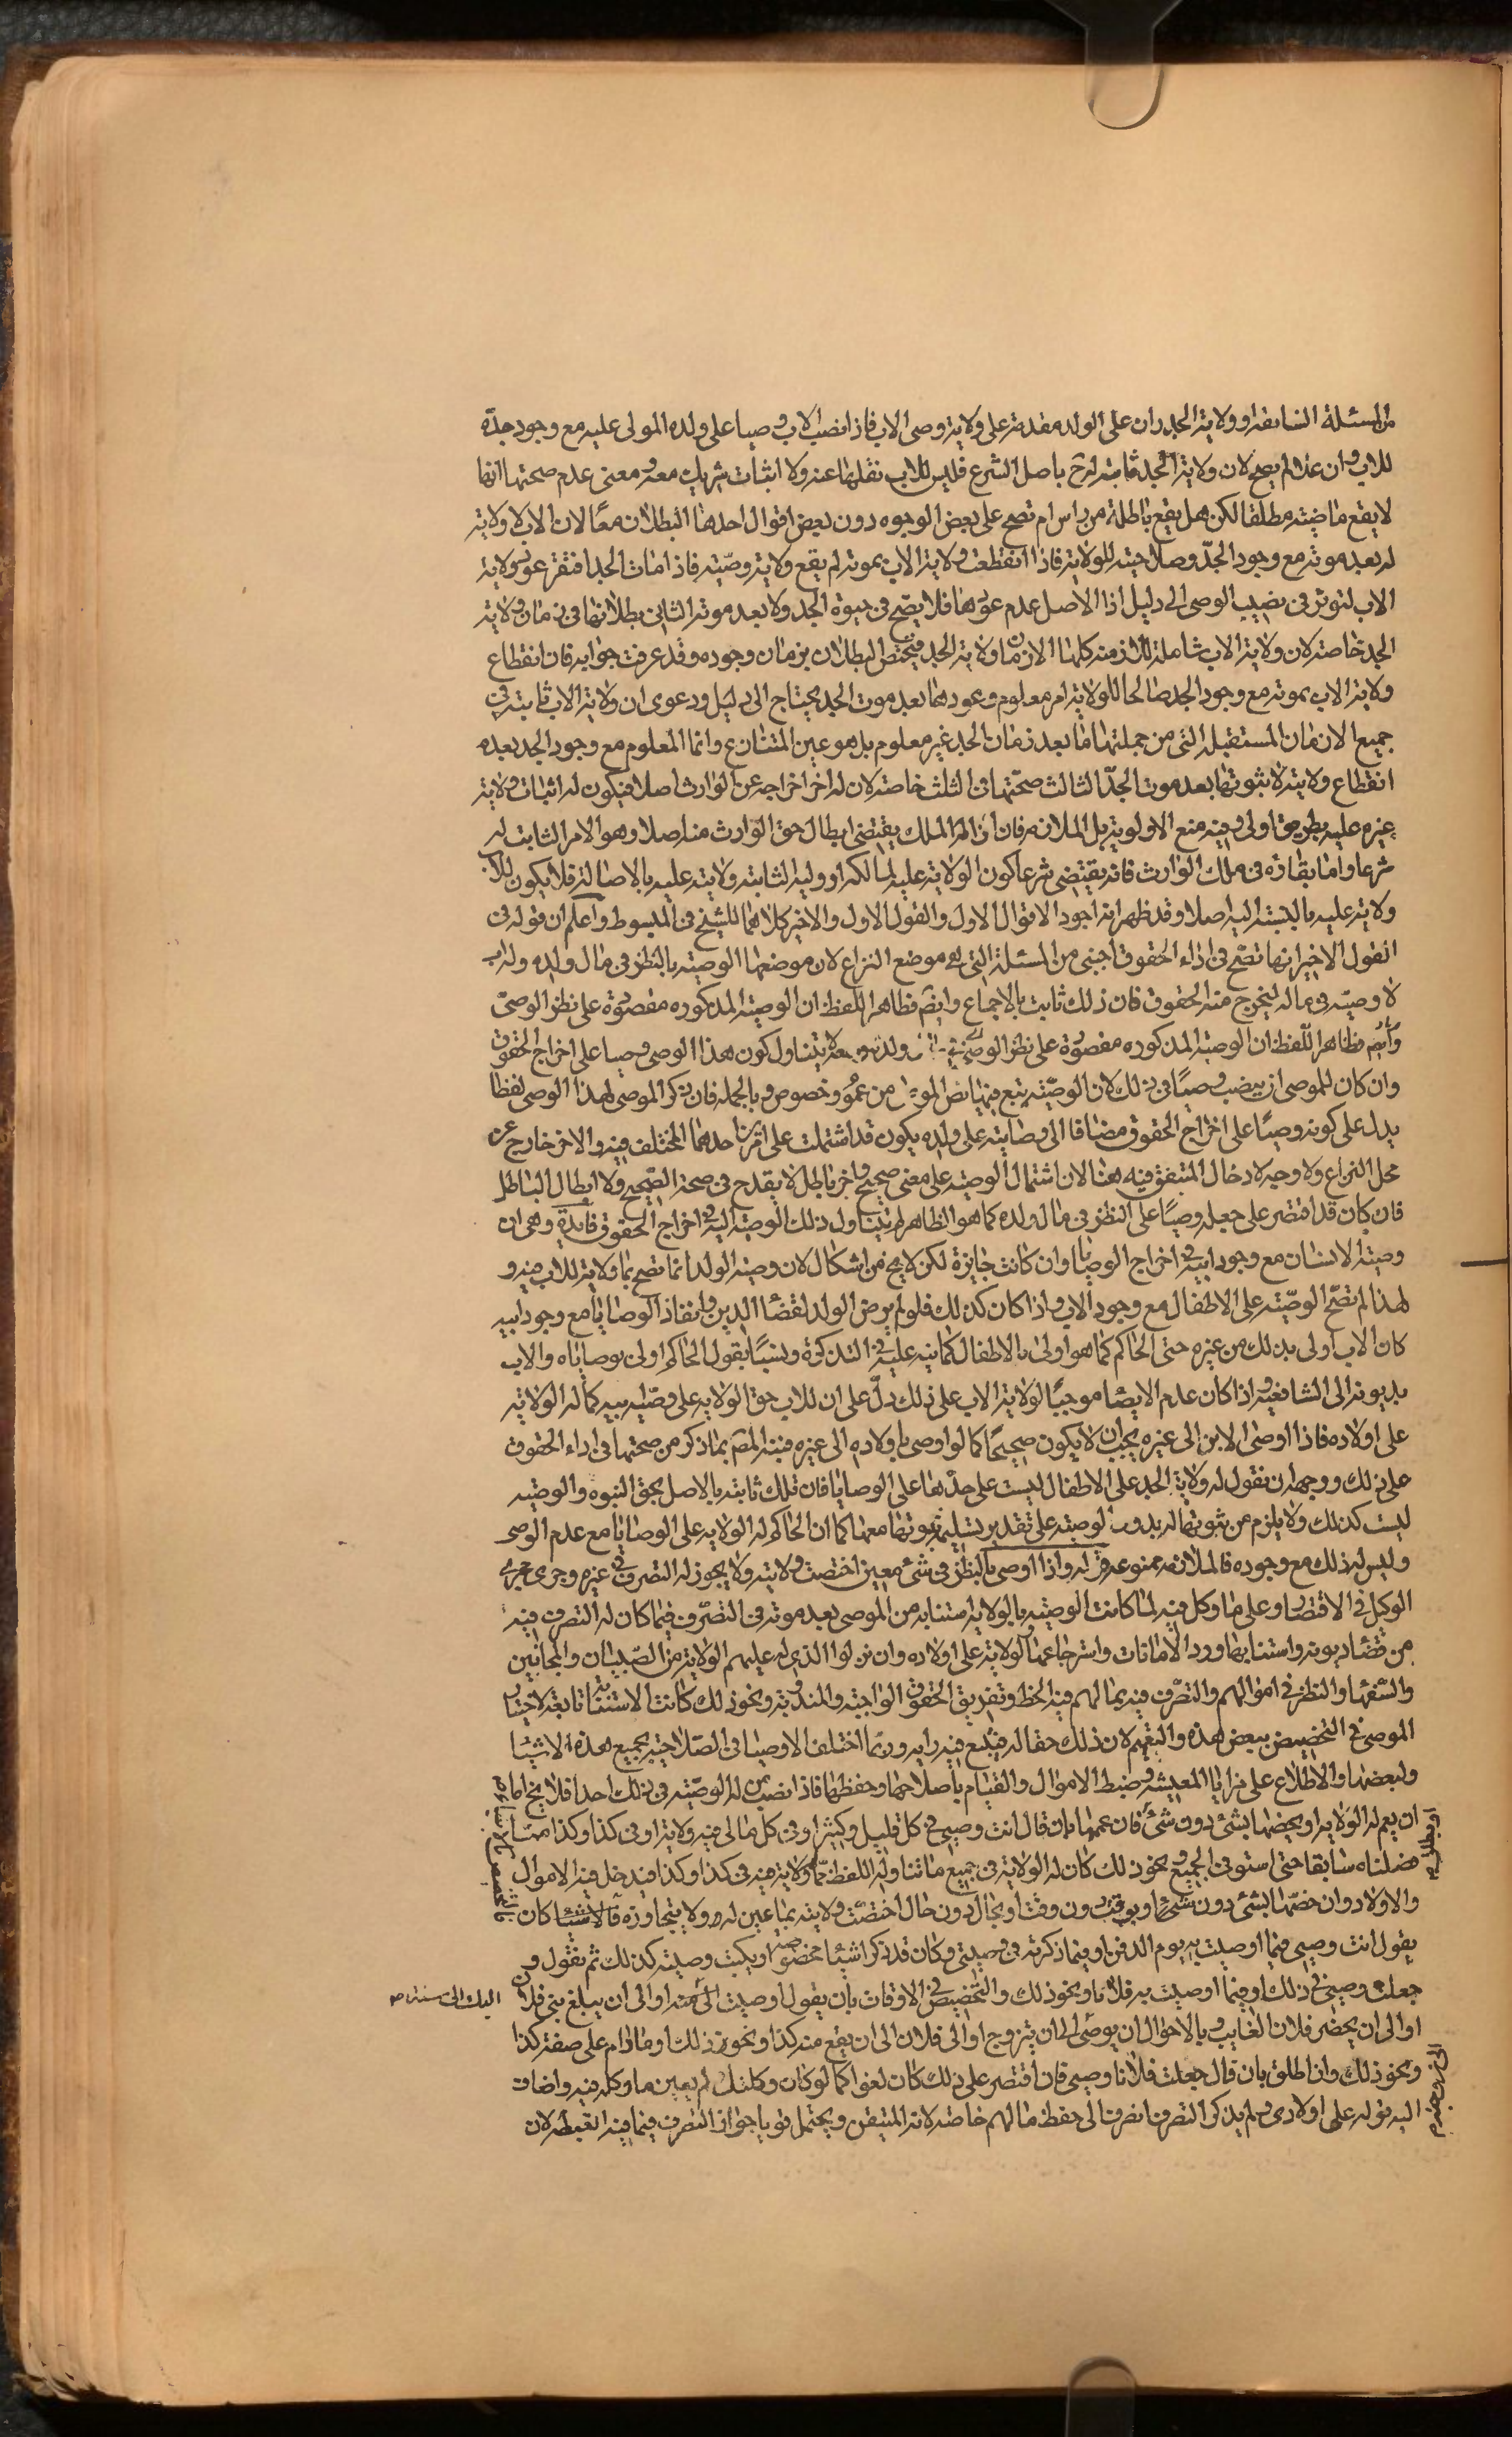 من المسئلة السابقة وولاية الجد وان علا على الولد مقدمة على ولاية وصى الاب فاذا نصب الاب وصيا على ولده المولى عليه مع وجود جده
للاب وان علا لم يصح لان ولاية الجد ثابتة له ح باصل الشرع فليس للاب نقلها عنه ولا اثبات شريك معه ومعنى عدم صحتها انها
لا يقع ماضية مطلقا لكن هل يقع باطلة من راس ام تصح على بعض الوجوه دون بعض اقوال احدها البطلان معا لان الاب لا ولاية
له بعد موته مع وجود الجد وصلاحيته للولاية فاذا انقطعت ولاية الاب بموته لم يقع ولاية وصيه فاذا مات الجد افتقر عود ولاية
الاب لتوثر فى نصب الوصى الى دليل اذا الاصل عدم عودها فلا يصح فى حيوة الجد ولا بعد موته الثانى بطلانها فى زمان ولاية
الجد خاصة لان ولاية الاب شاملة للازمنة كلها الا زمان ولاية الجد فيختص البطلان بزمان وجوده وقد عرفت جوابه فان انقطاع
ولاية الاب بموته مع وجود الجد صالحا للولاية امر معلوم وعودها بعد موت الجد يحتاج الى دليل ودعوى ان ولاية الاب ثابتة فى
جميع الازمان المستقبلة التى من جملتها ما بعد زمان الجد غير معلوم بل هو عين المتنازع وانما المعلوم مع وجود الجد بعده
انقطاع ولايته لا ثبوتها بعد موت الجد الثالث صحتها فى الثلث خاصة لان له اخراجه عن الوارث اصلا فيكون له اثبات ولاية
غيره عليه بطريق اولى وفيه منع الاولوية بل الملازمة فان ازالة الملك يقتضى ابطال حق الوارث منه اصلا وهو الامر الثابت له
شرعا واما بقاؤه فى ملك الوارث فانه يقتضى شرعا كون الولاية عليه لمالكه او وليه الثابتة ولايته عليه بالاصالة فلا يكون للاب
ولاية عليه بالنسبة اليه اصلا وقد ظهر انه اجود الاقوال الاول والقول الاول والاخير كلاهما للشيخ فى المبسوط واعلم ان قوله فى
القول الاخير انها تصح فى اداء الحقوق اجنبى من المسئلة التى هى موضع النزاع لان موضعها الوصية بالنظر فى مال ولده وله اب
لا وصيته فى ماله ليخرج منه الحقوق فان ذلك ثابت بالاجماع وايضم فظاهر اللفظ ان الوصية المذكوره مقصورة على نظر الوصى
وايضم فظاهر اللفظ ان الوصية المذكوره مقصورة على نظر الوصى فى مال ولده وهو لا يتناول كون هذا الوصى وصيا على اخراج الحقوق
وان كان للموصى ان ينصب وصيا فى ذلك لان الوصية يتبع فيها نص الموصى من عموم وخصوص وبالجملة فان ذكر الموصى لهذا الوصى لفظا
يدل على كونه وصيا على اخراج الحقوق مضافا الى وصايته على ولده يكون قد اشتملت على امرين احدهما المختلف فيه والاخر خارج عن
محل النزاع ولا وجه لادخال المتفق فيه هنا لان اشتمال الوصية على معنى صحيح واخر باطل لا يقدح فى صحة الصحيح ولا ابطال الباطل
فان كان قد اقتصر على جعله وصيا على النظر فى مال ولده كما هو الظاهر لم يتناول ذلك الوصية اليه فى اخراج الحقوق فايدة وهى ان
وصية الانسان مع وجود ابيه فى اخراج الوصايا وان كانت جايزة لكن لا يخ من اشكال لان وصية الولد انما تصح بما لا ولاية للاب فيه و
لهذا لم تصح الوصية على الاطفال مع وجود الاب واذا كان كذلك فلو لم يوص الولد لقضاء الدين وانفاذ الوصايا مع وجود ابيه
كان الاب اولى بذلك من غيره حتى الحاكم كما هو اولى بالاطفال كما نبه عليه فى التذكرة ونسب القول الحاكم اولى بوصاياه والاب
بديونه الى الشافعية واذا كان عدم الايصاء موجبا لولاية الاب على ذلك دل على ان للاب حق الولاية على وصية ابنه كما له الولاية
على اولاده فاذا اوصى الابن الى غيره يجب ان لا يكون صحيحا كما لو اوصى باولاده الى غيره فنبه المص بما ذكر من صحتها فى اداء الحقوق
على ذلك ووجهه ان نقول له ولاية الجد على الاطفال ليست على حدها على الوصايا فان تلك ثابتة بالاصل بحق البنوه والوصية
ليست كذلك ولا يلزم من ثبوتها له بدون الوصية على تقدير تسليمه ثبوتها معها كما ان الحاكم له الولاية على الوصايا مع عدم الوصى
وليس له ذلك مع وجوده فالملازمة ممنوعة قوله واذا اوصى بالنظر فى شئ معين اختصت ولايته ولا يجوز له التصرف فى غيره وجرى مجرى
الوكيل فى الاقتصار على ما وكل فيه لما كانت الوصية بالولاية استنابة من الموصى بعد موته فى التصرف فيما كان له التصرف فيه
من قضاء ديونه واستيفائها ورد الامانات واسترجاعها والولاية على اولاده وان نزلوا الذى له عليهم الولاية من الصبيان والمجانين
والسفهاء والنظر فى اموالهم والتصرف فيه بما لهم فيه الحظ وتفريق الحقوق الواجبة والمندوبة ونحو ذلك كانت الاستنابة تابعة لاختيار
الموصى فى التخصيص ببعض هذه والتعميم لان ذلك حقا له فيتبع فيه رايه وربما اختلف الاوصياء فى الصلاحية بجميع هذه الاشياء
ولبعضها والاطلاع على مزايا المعيشة وضبط الاموال والقيام باصلاحها وحفظها فاذا نصب من له الوصية فى ذلك احدا فلا يخ اما
ان يعم له الولاية او يخصها بشئ دون شئ فان عمها بان قال انت وصيى فى كل قليل وكثير او فى كل مالى فيه ولاية او فى كذا وكذا مما
فصلناه سابقا حتى استوفى الجميع ونحو ذلك كان له الولاية فى جميع ما تناوله اللفظ مما له ولاية فيه فى كذا وكذا فيدخل فيه الاموال
والاولاد وان خصها بشئ دون شئ او بوقت دون وقت او بحال دون حال اختصت ولايته بما عين له ولا يتجاوزه فالاشياء كان
يقول انت وصيى فيما اوصيت به يوم الدفن او فيما ذكرته فى وصيتى وكان قد ذكر اشياء مخصوصة او يكتب وصيته كذلك ثم يقول و
جعلت وصيى فى ذلك او فيما اوصيت به فلانا ونحو ذلك والتخصيص فى الاوقات بان يقول اوصيت اليك الى سنة او الى ان يبلغ بنى فلان
او الى ان يحضر فلان الغايب وبالاحوال ان يوصى الى ان يتزوج او الى فلان الى ان يقع منه كذا ونحو ذلك او ما دام على صفة كذا
ونحو ذلك وان اطلق بان قال جعلت فلانا وصيى فان اقتصر على ذلك كان لغوا كما لو كان وكلتك لم يعين ما وكله فيه واضاف
اليه قوله على اولادى ولم يذكر التصرف انصرف الى حفظ مالهم خاصة لانه المتيقن ويحتمل قويا جواز التصرف فيما فيه الغبطة لان
اليك الى سنة صح